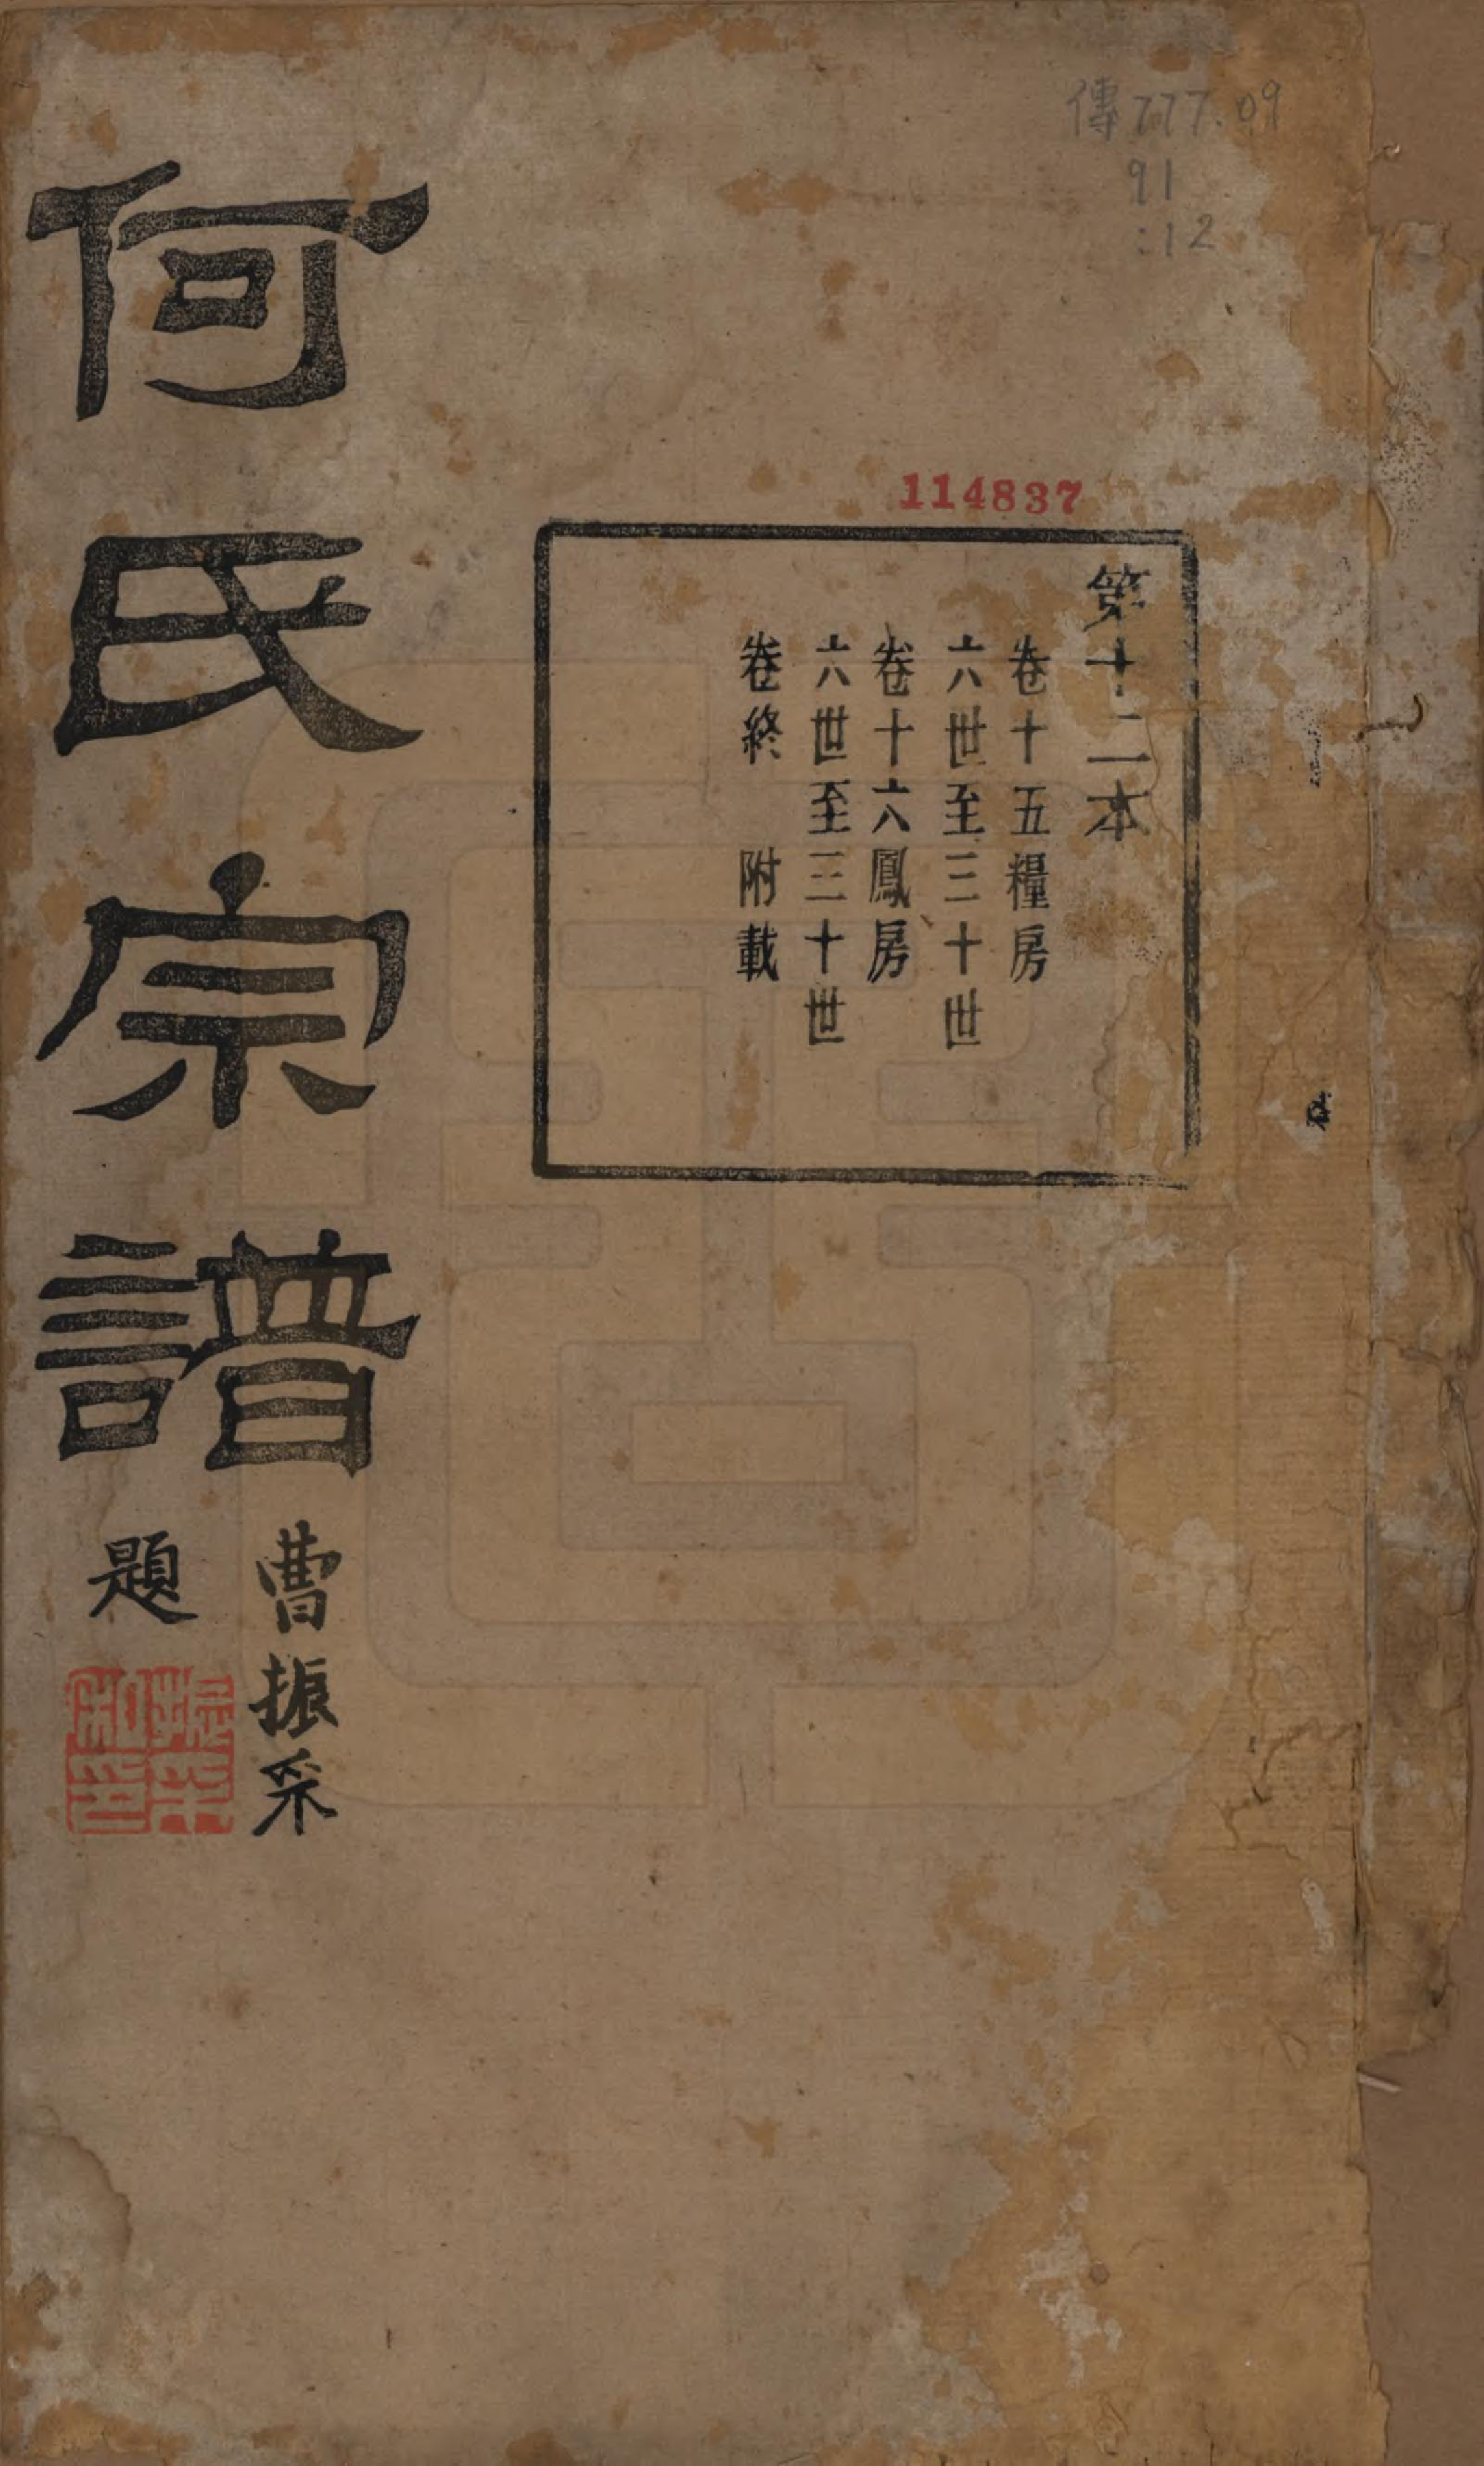 傳777.09
91
:12
114837
第十二本
卷十五糧房
六世至三十世
卷十六鳳房
六世至三十世
卷終 附載
何氏宗譜
曹振采
題